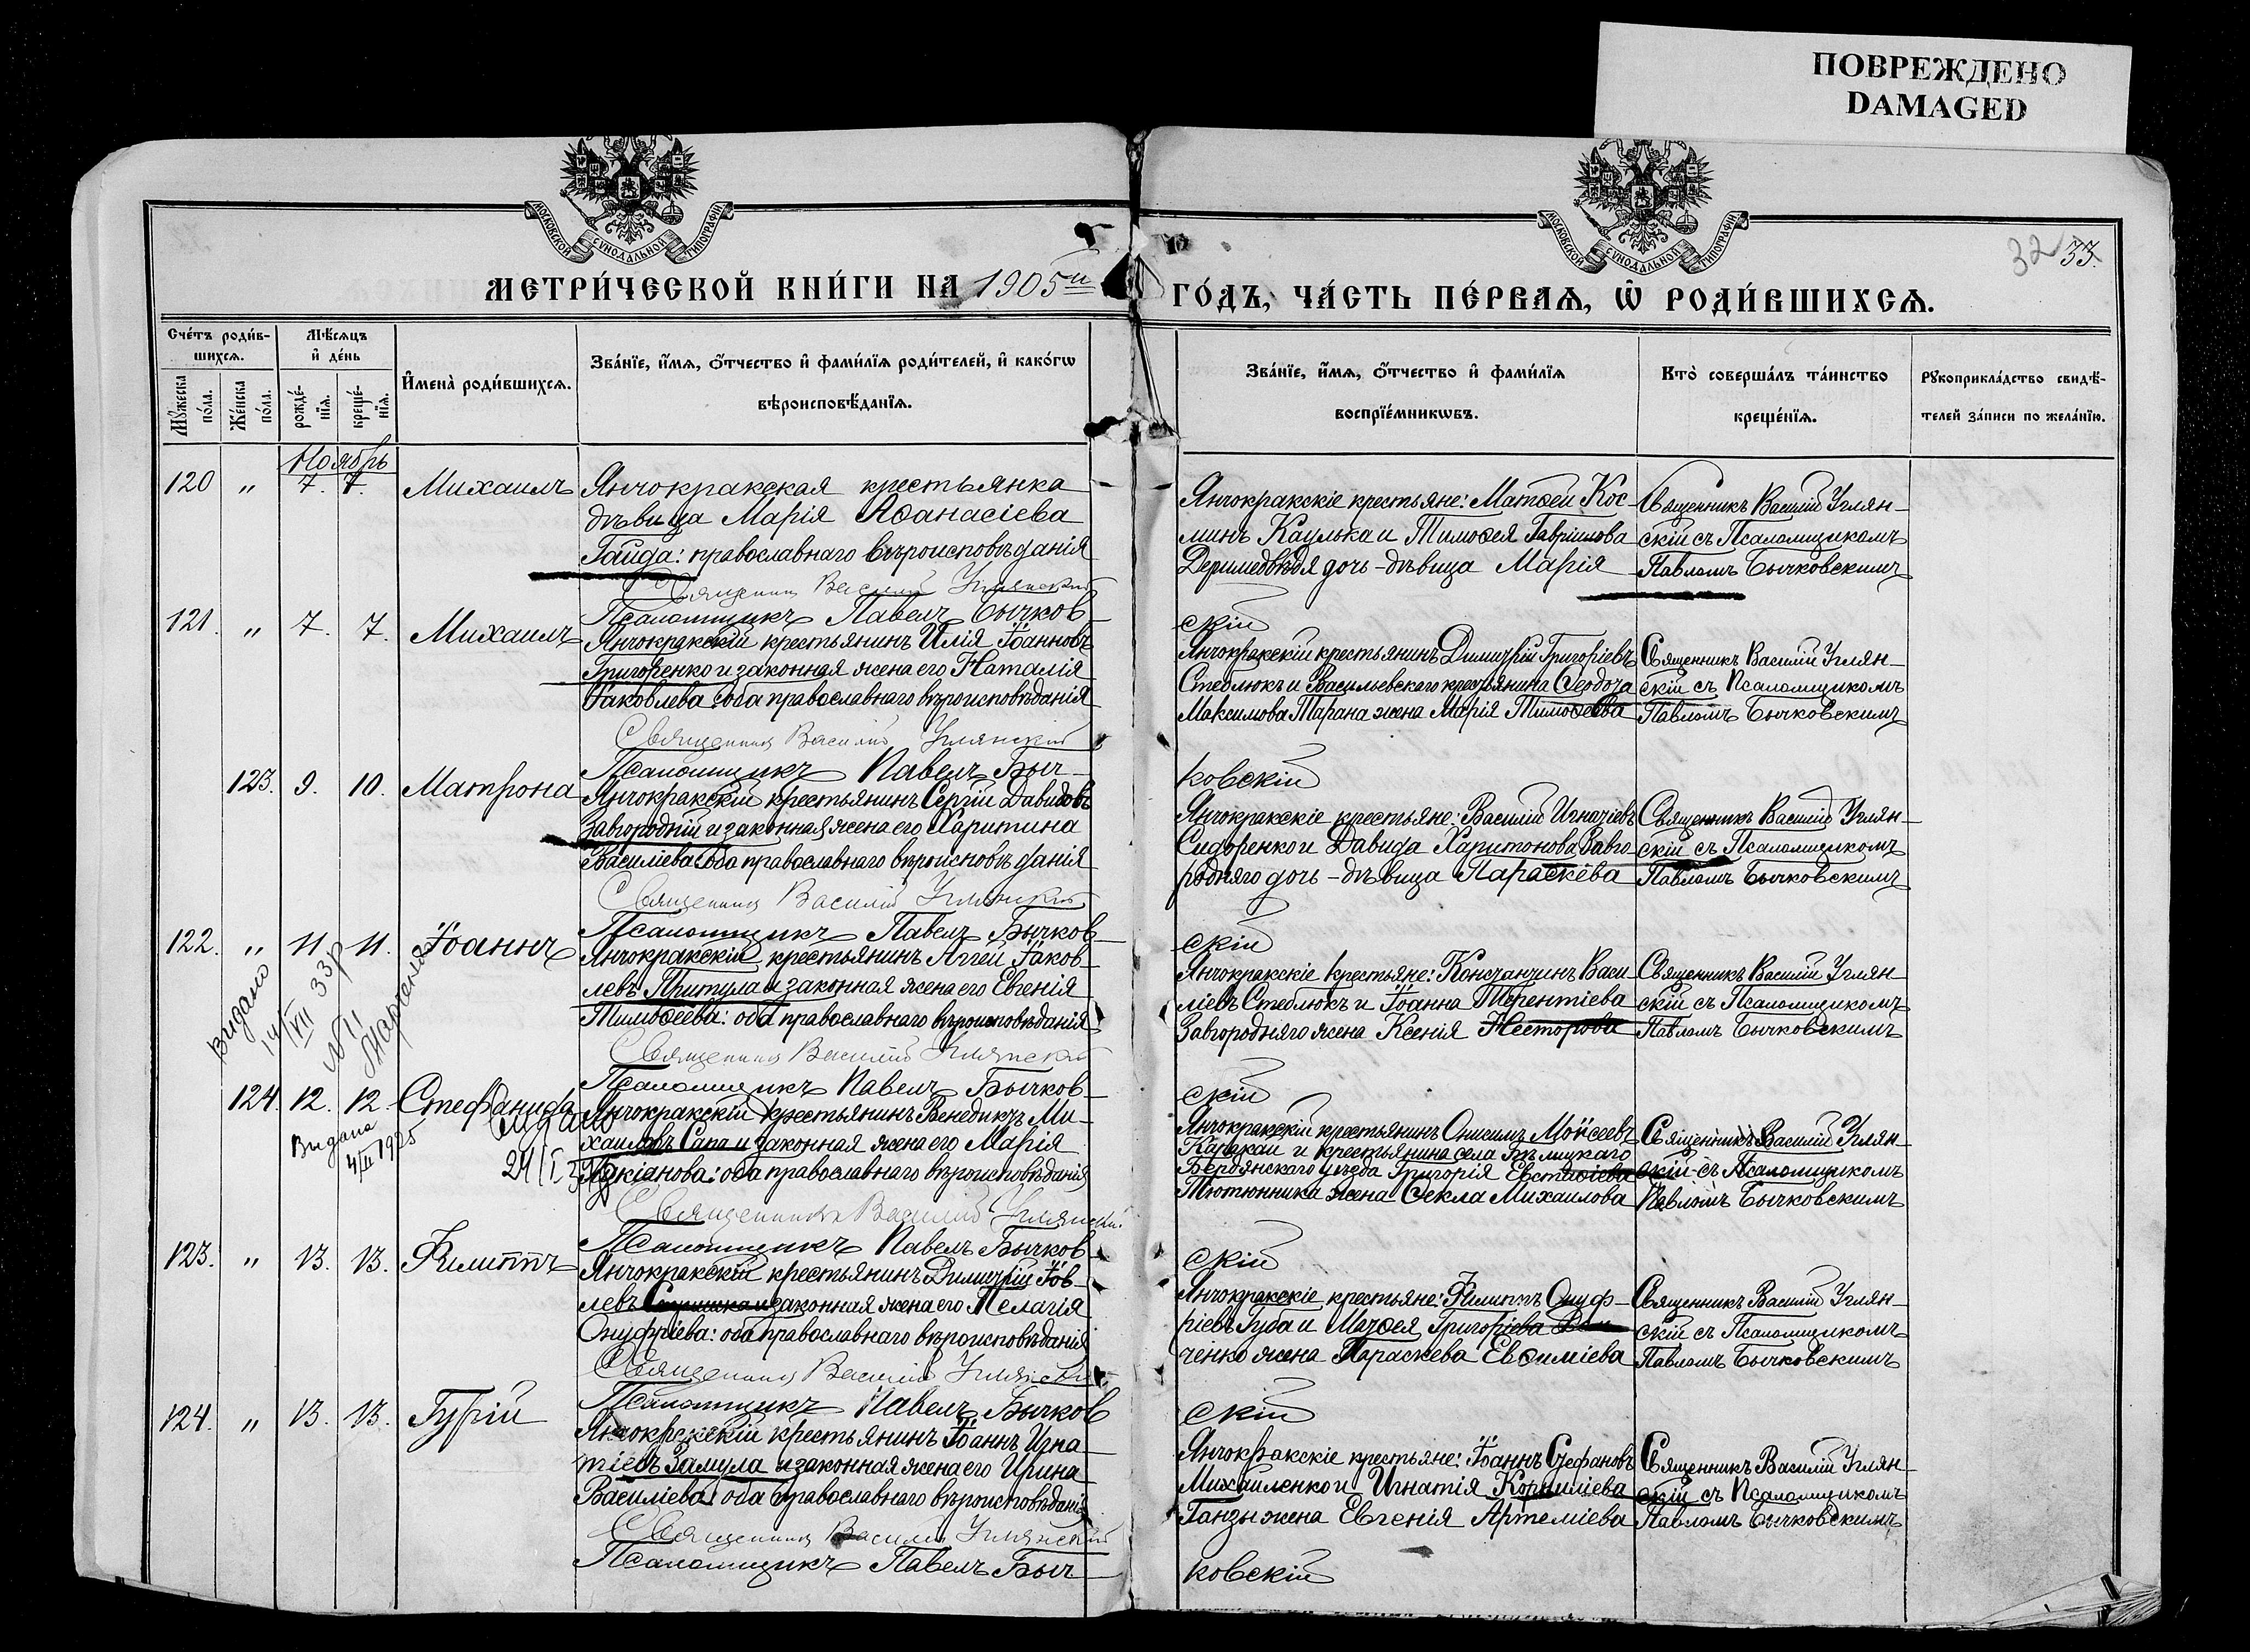 ПОВРЕЖДЕНО
DAMAGED
МОСКОВСКОЙ СѴНОДАЛЬНОЙ ТИПОГРАФІИ
МОСКОВСКОЙ СѴНОДАЛЬНОЙ ТИПОГРАФІИ
32 33.
МЕТРИ́ЧЕСКОЙ КНИ́ГИ НА 1905й
ГО́ДЪ, ЧА́СТЬ ПЕ́РВАѦ, Ѡ҆ РОДИ́ВШИХСѦ.
Сче́тъ роди́в-
шихсѧ.
Мѣ́сѧцъ
и҆ де́нь
Мꙋ́жеска
по́ла.
Же́нска
по́ла.
рожде́-
нїѧ.
креще́-
нїѧ.
И҆мена̀ роди́вшихсѧ.
Зва́нїе, и҆́мѧ, ѻ҆́тчество и҆ фами́лїѧ роди́телей, и҆ како́гѡ
вѣроисповѣ́данїѧ.
Зва́нїе, и҆́мѧ, ѻ҆́тчество и҆ фами́лїѧ
воспрїе́мникѡвъ.
Кто̀ соверша́лъ та́инство
креще́нїѧ.
Рꙋкоприкла́дство свидѣ́-
телей за́писи по жела́нїю.
Ноябрь
120 " 7. 7. Михаилъ
Янчокракская крестьянка
дѣвица Марія Аѳанасіева
Гайда: православнаго вѣроисповѣданія
Священникъ Василій Углянскій
Псаломщикъ Павелъ Бычков-
Янчокракскіе крестьяне: Матѳей Кос-
минъ Каулька и Тимоѳея Гавріилова
Деримедвѣдя дочь-дѣвица Марія
скій
Священникъ Василій Углян-
скій съ Псаломщикомъ
Павломъ Бычковскимъ
121. " 7. 7. Михаилъ
Янчокракскій крестьянинъ Илія Іоанновъ
Григоренко и законная жена его Наталія
Іаковлева: оба православнаго вѣроисповѣданія
Священникъ Василій Углянскій
Псаломщикъ Павелъ Быч-
Янчокракскій крестьянинъ Димитрій Григоріевъ
Стеблюкъ и Васильевскаго крестьянина Ѳеодота
Максимова Тарана жена Марія Тимоѳеева
ковскій
Священникъ Василій Углян-
скій съ Псаломщикомъ
Павломъ Бычковскимъ
123. 9. 10. Матрона
Янчокракскій крестьянинъ Сергій Давидовъ
Завгородній и законная жена его Харитина
Василіева: оба православнаго вѣроисповѣданія
Священникъ Василій Углянскій
Псаломщикъ Павелъ Бычков-
Янчокракскіе крестьяне: Василій Игнатіевъ
Сидоренко и Давида Харитонова Завго-
родняго дочь-дѣвица Параскева
скій
Священникъ Василій Углян-
скій съ Псаломщикомъ
Павломъ Бычковскимъ
122. " 11. 11. Іоаннъ
Видано
14/VII 33р
Янчокракскій крестьянинъ Аггей Іаков-
левъ Притула и законная жена его Евгенія
Тимоѳеева: оба православнаго вѣроисповѣданія
Священникъ Василій Углянскій
Псаломщикъ Павелъ Бычков-
Янчокракскіе крестьяне: Константинъ Васи-
ліевъ Стеблюкъ и Іоанна Терентіева
Завгородняго жена Ксенія Несторова
скій
Священникъ Василій Углян-
скій съ Псаломщикомъ
Павломъ Бычковскимъ
124. 12. 12. Стефанида
Видана
4/III 1925
Видано
Янчокракскій крестьянинъ Венедиктъ Ми-
хаиловъ Сапа и законная жена его Марія
Лукіанова: оба православнаго вѣроисповѣданія
Священникъ Василій Углянскій
Псаломщикъ Павелъ Бычков-
Янчокракскій крестьянинъ Онисимъ Моисеевъ
и крестьянина села Бѣлицкаго
Бердянскаго уѣзда Григорія Евстафіева
Тютюнника жена Ѳекла Михаилова
скій
Священникъ Василій Углян-
скій съ Псаломщикомъ
Павломъ Бычковскимъ
123. " 13. 13. Филиппъ
Янчокракскій крестьянинъ Димитрій Іов-
левъ и законная жена его Пелагія
Онуфріева: оба православнаго вѣроисповѣданія
Священникъ Василій Углянскій
Псаломщикъ Павелъ Бычков
Янчокракскіе крестьяне: Филиппъ Онуф-
ріевъ Губа и Матѳея Григоріева Дем-
ченко жена Параскева Евѳиміева
скій
Священникъ Василій Углян-
скій съ Псаломщикомъ
Павломъ Бычковскимъ
124. " 13. 13. Гурій
Янчокракскій крестьянинъ Іоаннъ Игна-
тіевъ Замула и законная жена его Ирина
Василіева: оба православнаго вѣроисповѣданія
Священникъ Василій Углянскій
Псаломщикъ Павелъ Быч-
Янчокракскіе крестьяне: Іоаннъ Стефановъ
Михайленко и Игнатія Корниліева
Ганзы жена Евгенія Артеміева
ковскій
Священникъ Василій Углян-
скій съ Псаломщикомъ
Павломъ Бычковскимъ